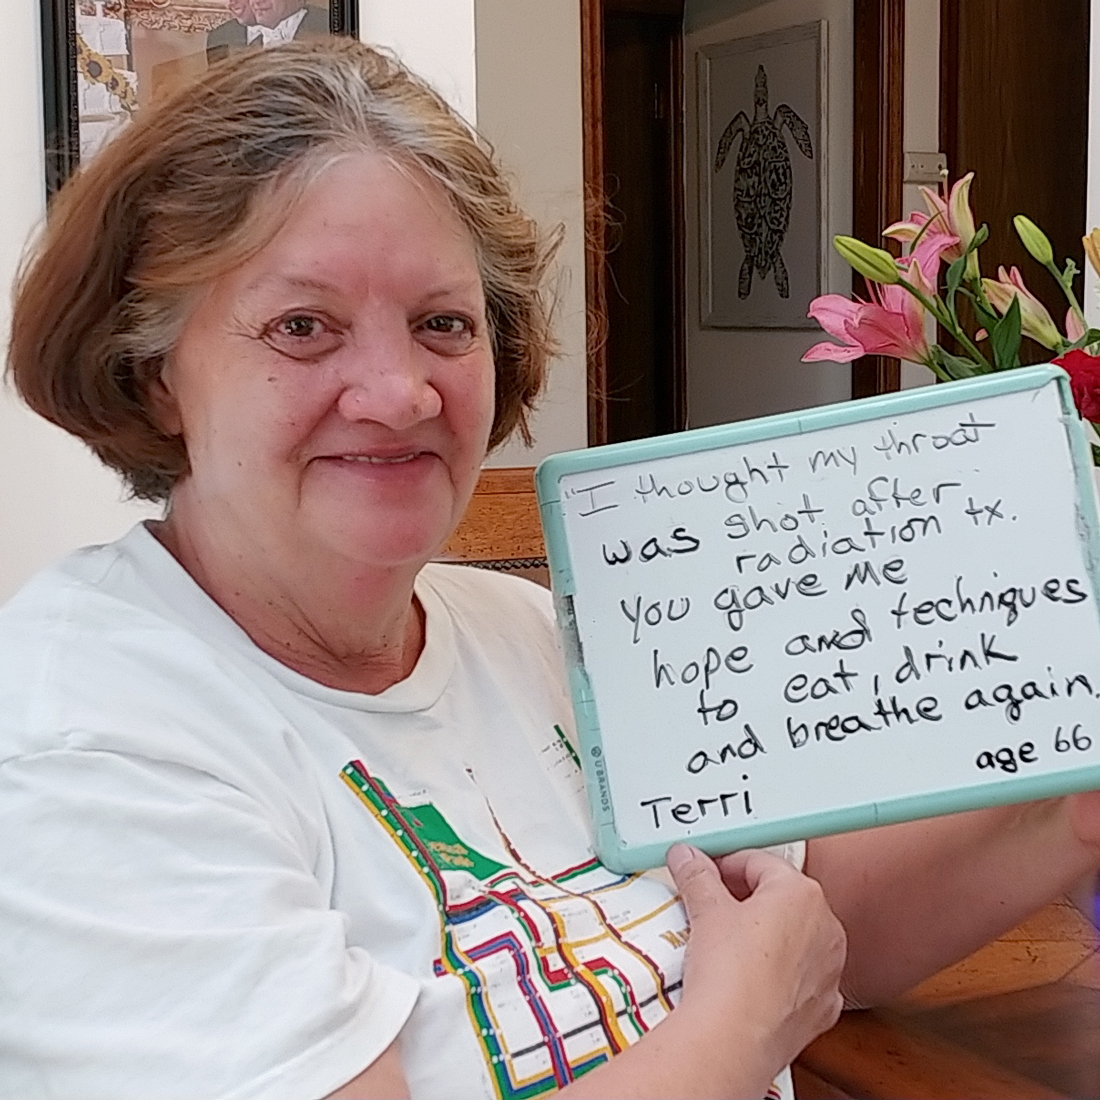 "I thought my throat
was shot after
radiation tx.
You gave me
hope and techniques
to eat, drink
and breathe again.
age 66
Terri
U BRANDS